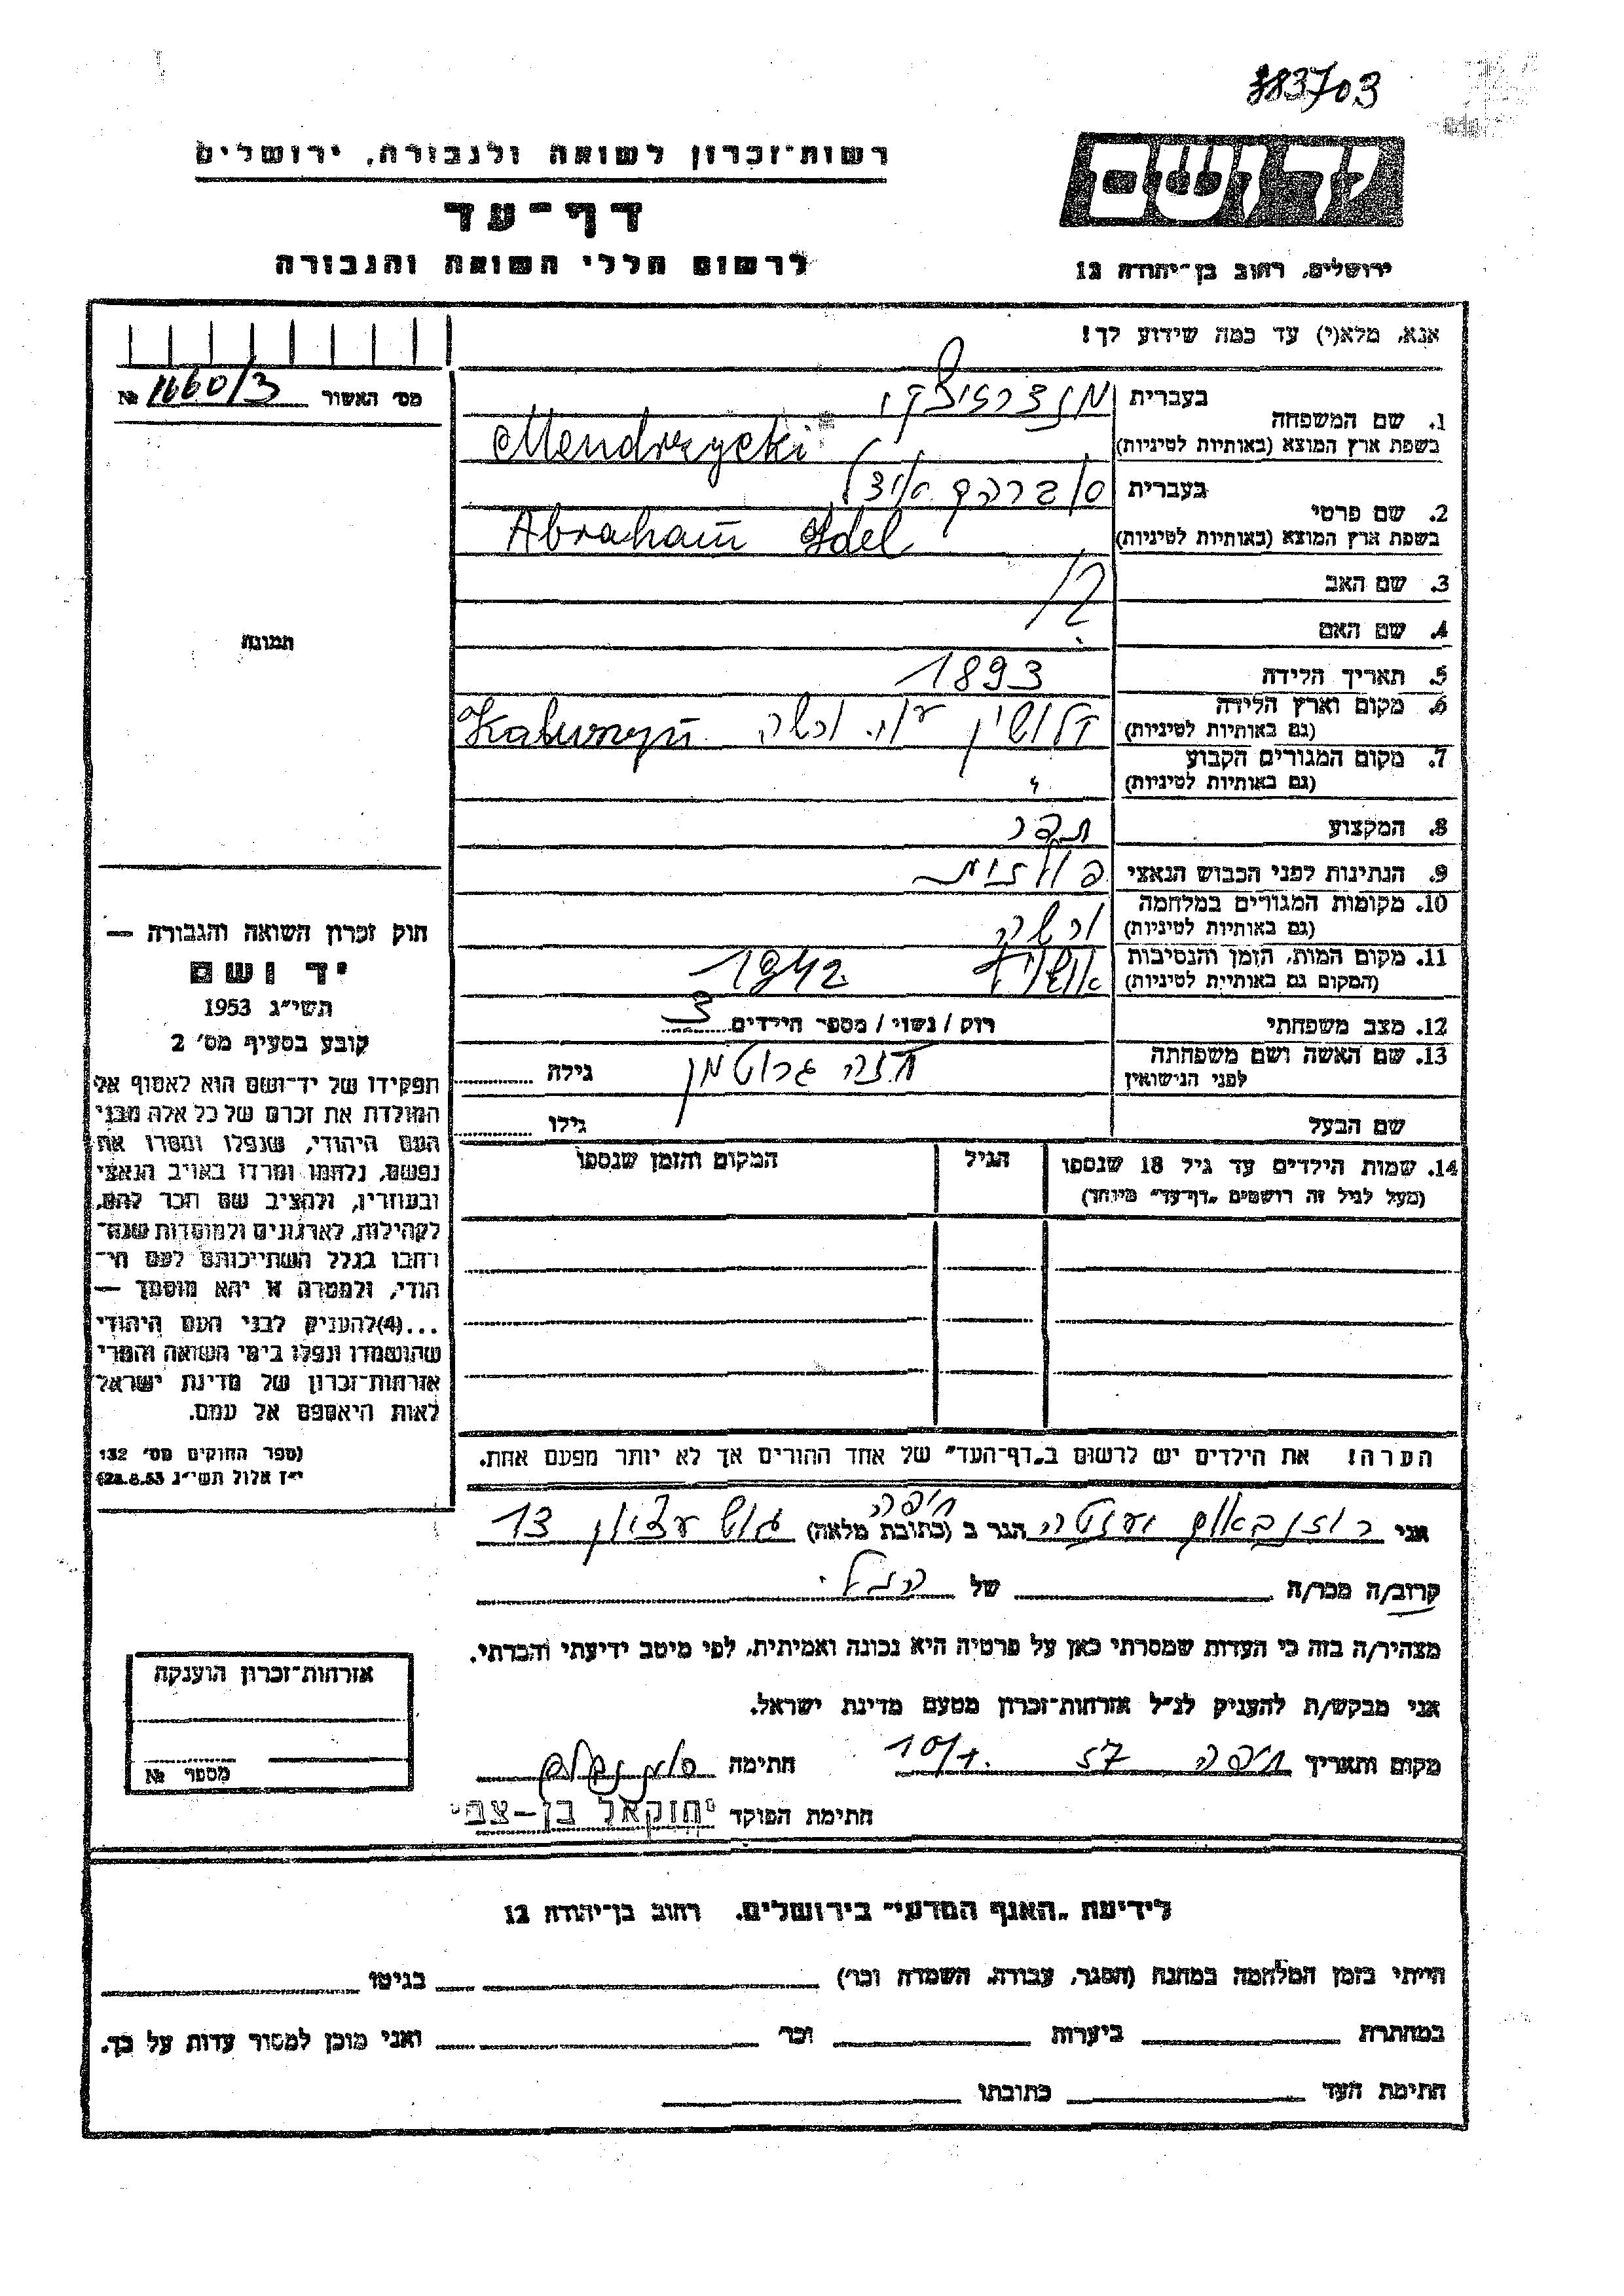 383703
רשות־זכרון לשואה ולגבורה, ירושלים
יד ושם
דף־עד
לרשום חללי השואה והגבורה
ירושלים, רחוב בן־יהודה 12
אנא, מלא(י) עד כמה שידוע לך!
מס' האשור № 1660/3
1. שם המשפחה
בעברית
בשפת ארץ המוצא (באותיות לטיניות) Mendrzycki
2. שם פרטי
בעברית אברהם אידל
בשפת ארץ המוצא (באותיות לטיניות) Abraham Idel
3. שם האב
4. שם האם
?
5. תאריך הלידה 1893
6. מקום וארץ הלידה
(גם באותיות לטיניות) קלושין ע"י ורשה Kaluszyn
7. מקום המגורים הקבוע
(גם באותיות לטיניות) "
8. המקצוע
9. הנתינות לפני הכבוש הנאצי פולנית
10. מקומות המגורים במלחמה
(גם באותיות לטיניות) ורשה
11. מקום המות, הזמן והנסיבות
(המקום גם באותיות לטיניות) 1942
12. מצב משפחתי רווק / נשוי / מספר הילדים 3
13. שם האשה ושם משפחתה
לפני הנישואין גרוטמן גילה
שם הבעל גילו
14. שמות הילדים עד גיל 18 שנספו
(מעל לגיל זה רושמים „דף־עד" מיוחד)
הגיל
המקום והזמן שנספו
הערה! את הילדים יש לרשום ב„דף־העד" של אחד ההורים אך לא יותר מפעם אחת.
תמונה
חוק זכרון השואה והגבורה —
יד ושם
תשי"ג 1953
קובע בסעיף מס' 2
תפקידו של יד־ושם הוא לאסוף אל
המולדת את זכרם של כל אלה מבני
העם היהודי, שנפלו ומסרו את
נפשם, נלחמו ומרדו באויב הנאצי
ובעוזריו, ולהציב שם וזכר להם,
לקהילות, לארגונים ולמוסדות שנח־
רבו בגלל השתייכותם לעם הי־
הודי, ולמטרה זו יהא מוסמך —
...(4) להעניק לבני העם היהודי
שהושמדו ונפלו בימי השואה והמרי
אזרחות־זכרון של מדינת ישראל
לאות היאספם אל עמם.
(ספר החוקים מס' 132
י"ז אלול תשי"ג 28.8.53)
חיפה
אני רוזנבאום הגר ב (כתובת מלאה) גוש עציון 13
קרוב/ה מכר/ה של הנ"ל
מצהיר/ה בזה כי העדות שמסרתי כאן על פרטיה היא נכונה ואמיתית, לפי מיטב ידיעתי והכרתי.
אני מבקש/ת להעניק לנ"ל אזרחות־זכרון מטעם מדינת ישראל.
מקום ותאריך חיפה 57 10/1. חתימה
חתימת הפוקד יחזקאל בן-צבי
אזרחות־זכרון הוענקה
מספר №
לידיעת „האגף המדעי" בירושלים, רחוב בן־יהודה 12
הייתי בזמן המלחמה במחנה (הסגר, עבודה, השמדה וכו') בגיטו
במחתרת ביערות וכו' ואני מוכן למסור עדות על כך.
חתימת העד כתובתו